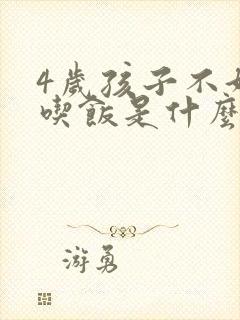 4歲孩子不好
喫飯是什麼
游勇